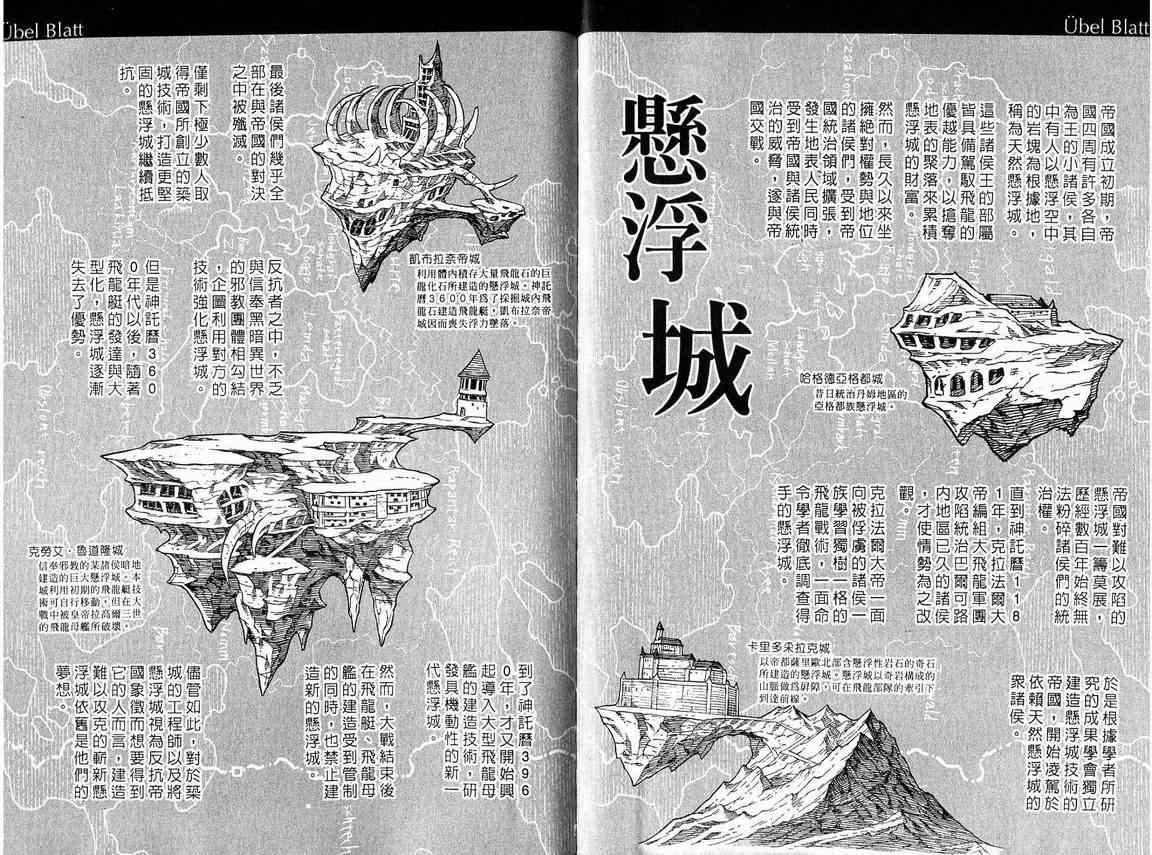 Übel Blatt
懸浮城
帝國成立初期，帝
國四周有許多各自
為王的小諸侯，其
中有人以懸浮空中
的岩塊為根據地，
稱為天然懸浮城。
這些諸侯王的部屬
皆具備駕馭飛龍的
優越能力，以搶奪
地表的聚落來累積
懸浮城的財富。
然而，長久以來坐
擁絕對權勢與地位
的諸侯們，受到帝
國統治領域擴張，
發生地表人民同時
受到帝國與諸侯統
治的威脅，遂與帝
國交戰。
哈格德亞格都城
昔日統治丹姆地區的
亞格都族懸浮城。
帝國對難以攻陷的
懸浮城一籌莫展，
歷經數百年始終無
法粉碎諸侯們的統
治權。
直到神託曆118
1年，克拉法爾大
帝編組大飛龍軍團
攻陷統治巴爾可路
內地區已久的諸侯
，才使情勢為之改
觀。
克拉法爾大帝一面
向被俘虜的諸侯一
族學習獨樹一格的
飛龍戰術，一面命
令學者徹底調查得
手的懸浮城。
卡里多采拉克城
以帝都薩里歐北部含懸浮性岩石的奇石
所建造的懸浮城。懸浮城以奇岩構成的
山脈做為屏障，可在飛龍部隊的牽引下
到達前線。
於是根據學者所研
究的成果學會獨立
建造懸浮城技術的
帝國，開始凌駕於
依賴天然懸浮城的
眾諸侯。
Übel Blatt
最後諸侯們幾乎全
部在與帝國的對決
之中被殲滅。
僅剩下極少數人取
得帝國所創立的築
城技術，打造更堅
固的懸浮城繼續抵
抗。
凱布拉奈帝城
利用體內積存大量飛龍石的巨
龍化石所建造的懸浮城。神託
曆3600年為了採掘城內飛
龍石建造飛龍艇，凱布拉奈帝
城因而喪失浮力墜落。
反抗者之中，不乏
與信奉黑暗異世界
的邪教團體相勾結
，企圖利用對方的
技術強化懸浮城。
但是神託曆360
0年代以後，隨著
飛龍艇的發達與大
型化，懸浮城逐漸
失去了優勢。
克勞艾·魯道隆城
信奉邪教的某諸侯暗地
建造的巨大懸浮城。本
城利用初期的飛龍艇技
術可自行移動，但在大
戰中被皇帝拉高爾三世
的飛龍母艦所破壞。
到了神託曆396
0年，才又開始興
起導入大型飛龍母
艦的建造技術，研
發具機動性的新一
代懸浮城。
然而，大戰結束後
，在飛龍艇、飛龍母
艦的建造受到管制
的同時，也禁止建
造新的懸浮城。
儘管如此，對於築
城的工程師以及將
懸浮城視為反抗帝
國象徵而想要得到
它的人而言，建造
難以攻克的嶄新懸
浮城依舊是他們的
夢想。